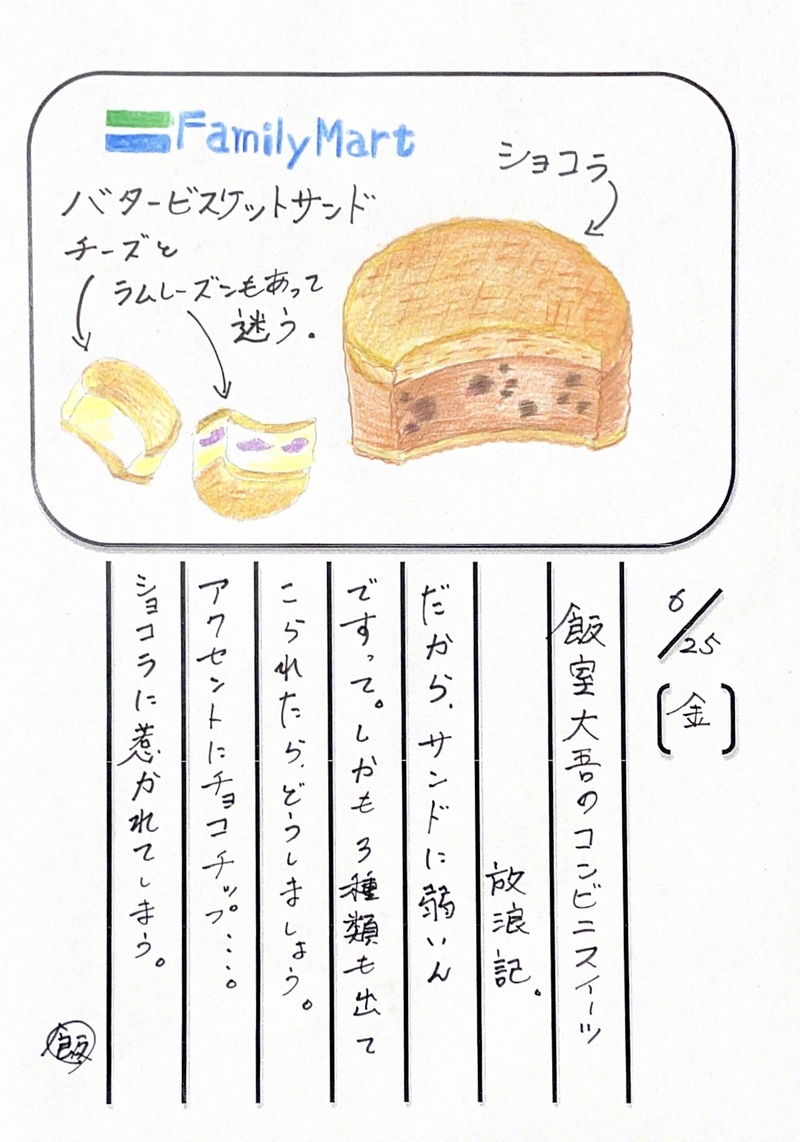 FamilyMart
ショコラ
バタービスケットサンド
チーズと
ラムレーズンもあって
迷う。
6/25
[金]
飯室大吾のコンビニスイーツ
放浪記.
だから、サンドに弱いん
ですって。しかも3種類も出て
こられたら、どうしましょう。
アクセントにチョコチップ・・・。
ショコラに惹かれてしまう。
飯